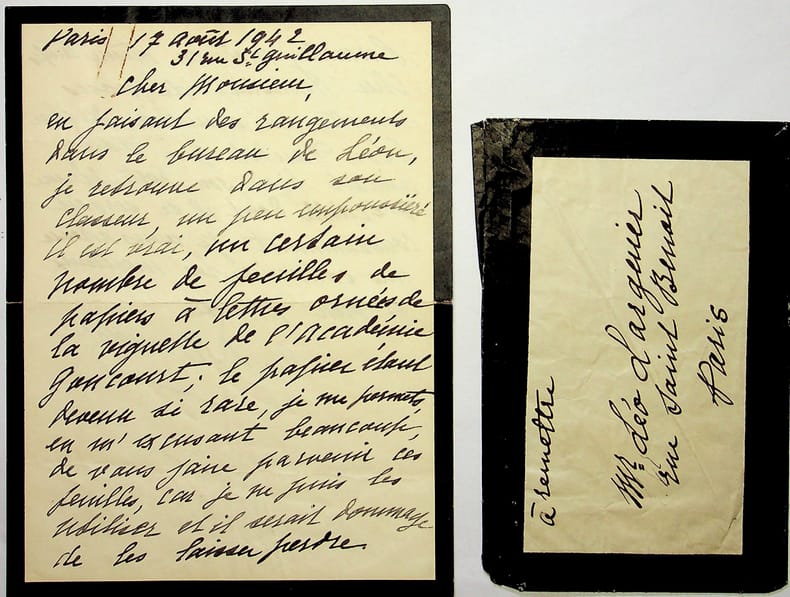 Paris 17 août 1942
31 rue St. Guillaume
Cher Monsieur,
en faisant des rangements
dans le bureau de Léon,
je retrouve dans son
classeur, un peu empoussiéré
il est vrai, un certain
nombre de feuilles de
papiers à lettres ornées de
la vignette de l'Académie
Goncourt; le papier étant
devenu si rare, je me permets,
en m'excusant beaucoup,
de vous faire parvenir ces
feuilles, car je ne puis les
utiliser et il serait dommage
de les laisser perdre.
à remettre
Mr. Léo Larguier
rue Saint Benoit
Paris